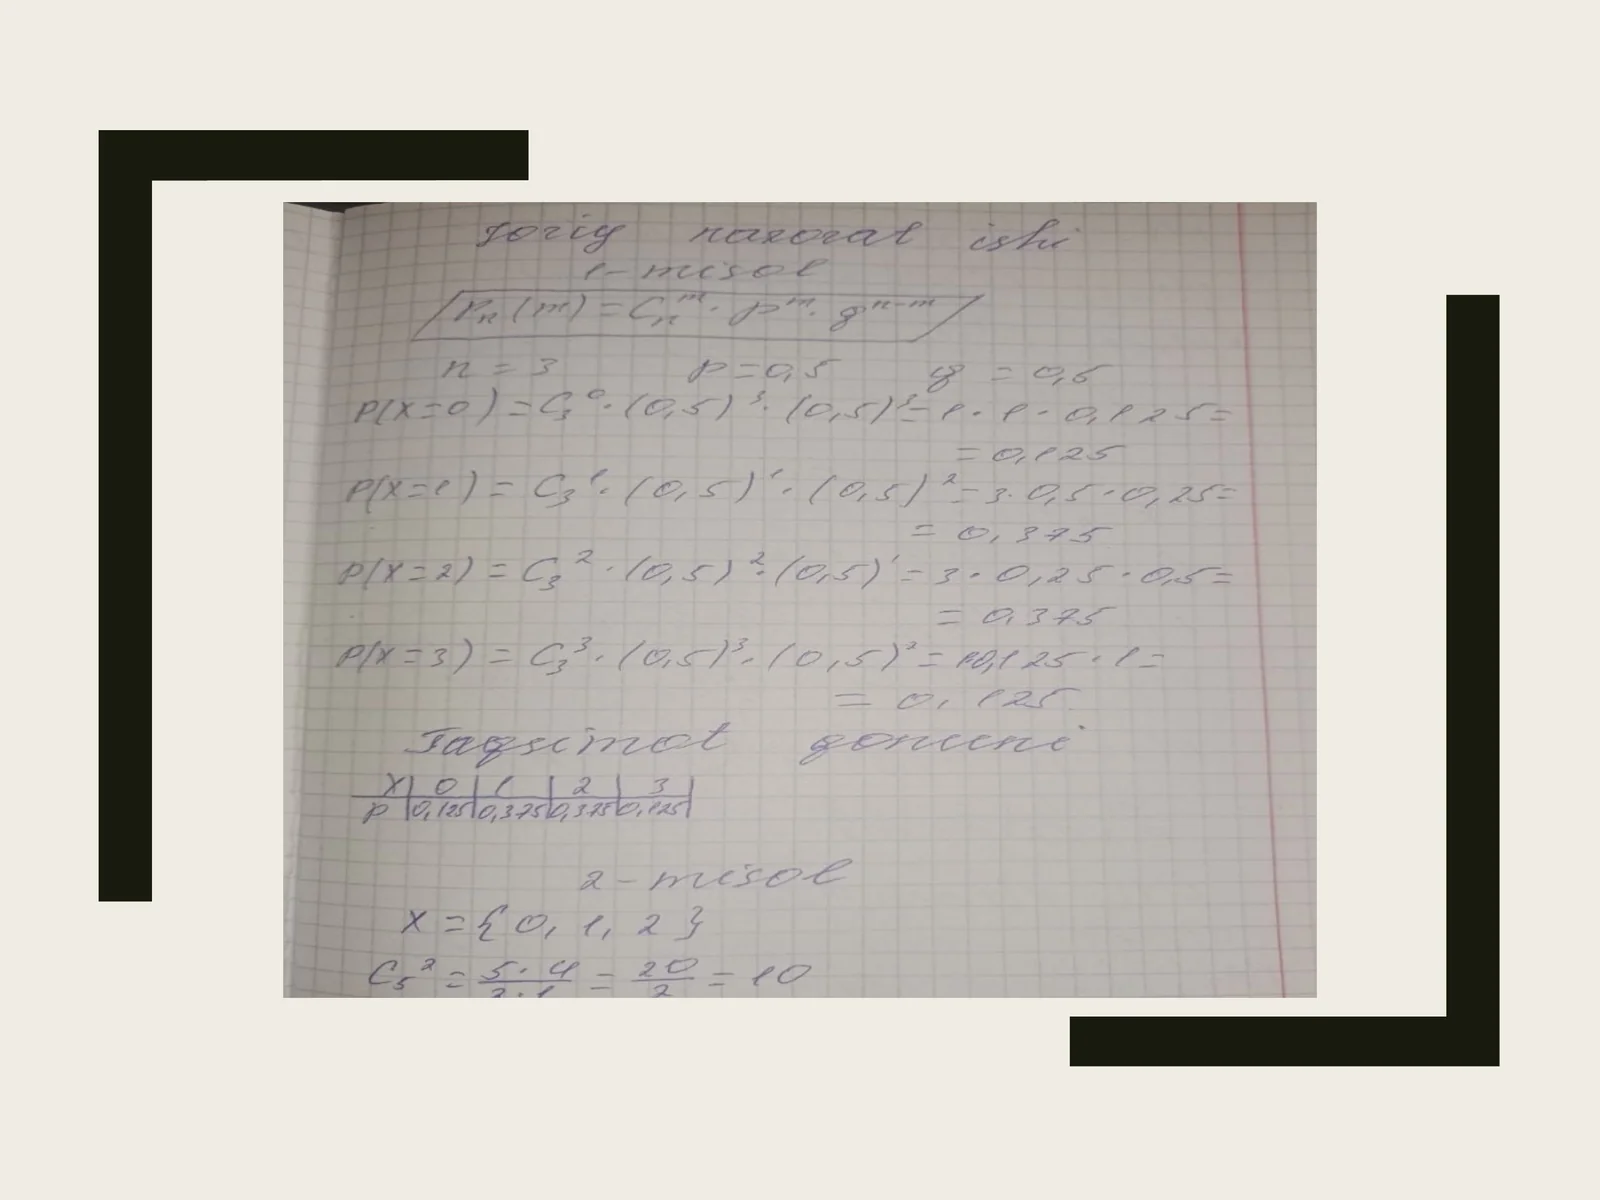 Joriy nazorat ishi
1-misol
Pn(m) = Cₙᵐ · pᵐ · qⁿ⁻ᵐ
n = 3 p = 0,5 q = 0,5
P(X=0) = C₃⁰ · (0,5)³ · (0,5)³ = 1 · 1 · 0,125 =
= 0,125
P(X=1) = C₃¹ · (0,5)¹ · (0,5)² = 3 · 0,5 · 0,25 =
= 0,375
P(X=2) = C₃² · (0,5)² · (0,5)¹ = 3 · 0,25 · 0,5 =
= 0,375
P(X=3) = C₃³ · (0,5)³ · (0,5) = 0,125 · 1 =
= 0,125
Taqsimot qonuni
X 0 1 2 3
P 0,125 0,375 0,375 0,125
2-misol
X = {0, 1, 2}
C₅² = 5·4/2·1 = 20/2 = 10